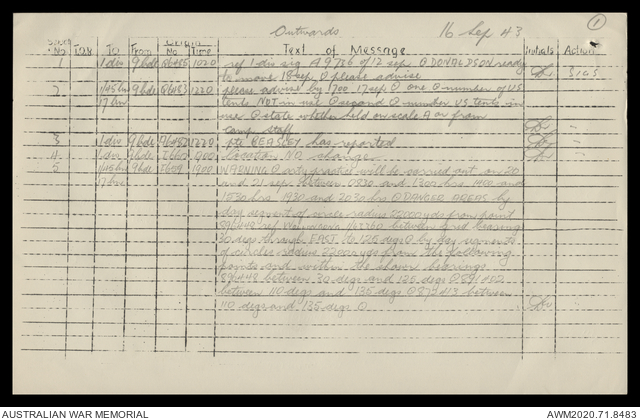 Outwards 16 Sep 43 1
No TOR To From Origin No Time Text of Message Initials Action
1 1 div 9 bde 1020 ref 1 div sig A9786 of 12 sep O DONALDSON ready
to move 18 sep O please advise Sigs
2 1/45 bn 9 bde 1220 please advise by 1700 17 sep O one O number of US
17 bn tents NOT in use O second O number US tents in
use O state whether held on scale A or from
camp staff
3 1 div 9 bde 1220 pte BEASLEY has reported
4 1 div 9 bde 1900 location NO change
5 1/45 bn 9 bde 1900 WARNING O arty practice will be carried out on 20
17 bn and 21 sep between 0830 and 1300 hrs 1400 and
1530 hrs 1930 and 2030 hrs O DANGER AREAS by
day segment of circle radius 22000 yds from point
896448 ref between grid bearings
30 degs through EAST to 125 degs O by day segments
of circles radius 22000 yds from the following
points and within the shown bearings
896448 between 30 degs and 125 degs O 891402
between 110 degs and 135 degs O 872413 between
110 degs and 135 degs O
AUSTRALIAN WAR MEMORIAL AWM2020.71.8483